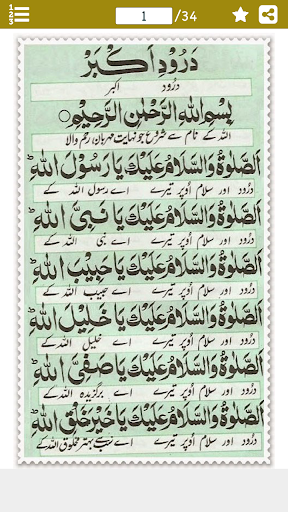 1 /34
دَرُودِ اَكْبَرْ
درود اکبر
بِسْمِ اللهِ الرَّحْمٰنِ الرَّحِيْمِ
اللہ کے نام سے شروع جو نہایت مہربان رحم والا
اَلصَّلٰوةُ وَالسَّلَامُ عَلَيْكَ يَا رَسُوْلَ اللهِ
درود اور سلام اُوپر تیرے اے رسول اللہ کے
اَلصَّلٰوةُ وَالسَّلَامُ عَلَيْكَ يَا نَبِىَّ اللهِ
درود اور سلام اُوپر تیرے اے نبی اللہ کے
اَلصَّلٰوةُ وَالسَّلَامُ عَلَيْكَ يَا حَبِيْبَ اللهِ
درود اور سلام اُوپر تیرے اے حبیب اللہ کے
اَلصَّلٰوةُ وَالسَّلَامُ عَلَيْكَ يَا خَلِيْلَ اللهِ
درود اور سلام اُوپر تیرے اے خلیل اللہ کے
اَلصَّلٰوةُ وَالسَّلَامُ عَلَيْكَ يَا صَفِىَّ اللهِ
درود اور سلام اُوپر تیرے اے برگزیدہ اللہ کے
اَلصَّلٰوةُ وَالسَّلَامُ عَلَيْكَ يَا خَيْرَ خَلْقِ اللهِ
درود اور سلام اُوپر تیرے اے سب بہتر مخلوق اللہ کے